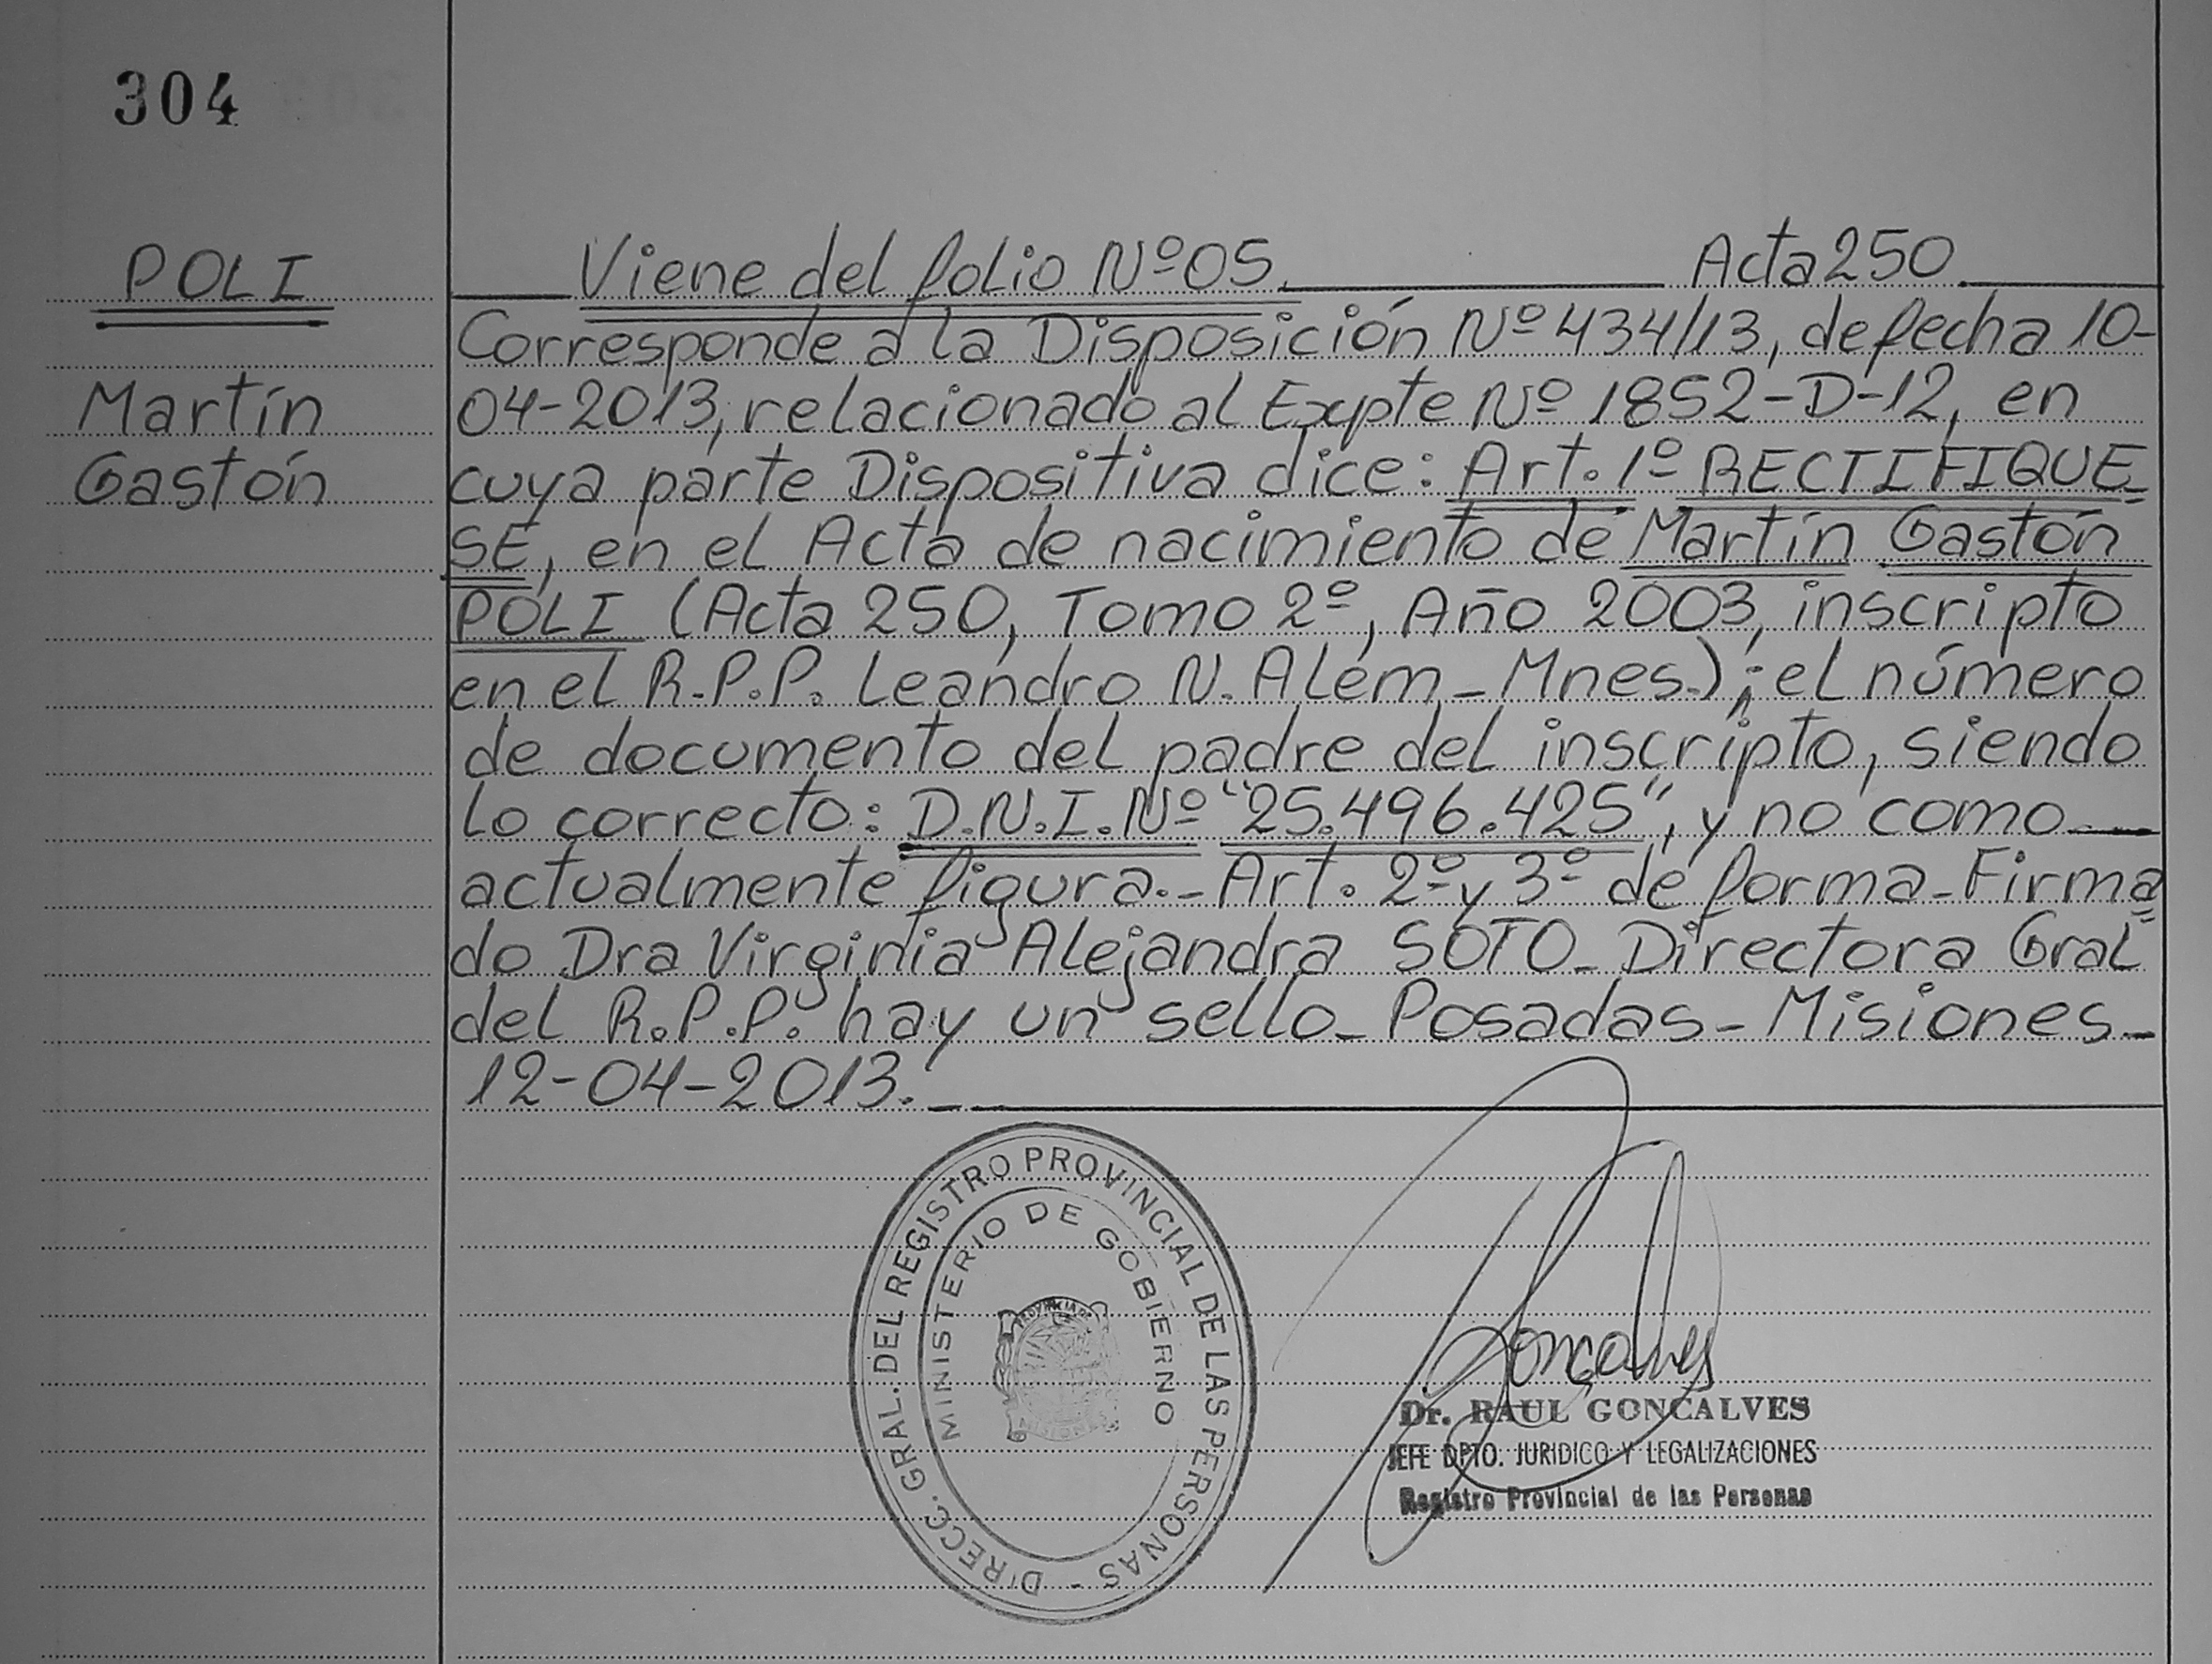 304
POLI
Martín
Gastón
Viene del folio Nº 05. Acta 250
Corresponde a la Disposición Nº 434/13, de fecha 10-
04-2013, relacionado al Expte Nº 1852-D-12, en
cuya parte Dispositiva dice: Art. 1º RECTIFIQUE=
SE, en el Acta de nacimiento de Martín Gastón
POLI (Acta 250, Tomo 2º, Año 2003, inscripto
en el R.P.P. Leandro N. Alem - Mnes.); el número
de documento del padre del inscripto, siendo
lo correcto: D.N.I. Nº "25.496.425", y no como
actualmente figura.- Art. 2º y 3º de forma - Firma=
do Dra Virginia Alejandra SOTO - Directora Gral
del R.P.P. hay un sello - Posadas - Misiones -
12-04-2013.-
DIRECC. GRAL. DEL REGISTRO PROVINCIAL DE LAS PERSONAS -
MINISTERIO DE GOBIERNO
Goncalves
Dr. RAUL GONCALVES
JEFE DPTO. JURIDICO Y LEGALIZACIONES
Registro Provincial de las Personas